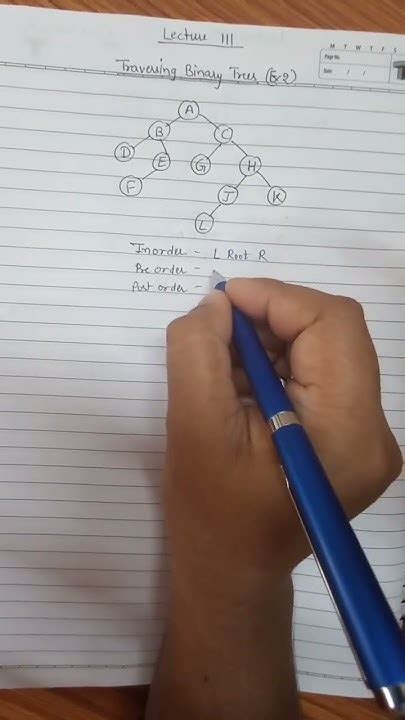 Lecture III
M T W T F S
Page No.
Date / /
Traversing Binary Trees (Ex-2)
A
B C
D E G H
F J K
L
Inorder - L Root R
Pre order -
Post order -